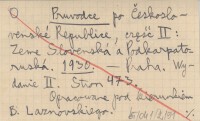 Průvodce po Českoslo-
venské Republice, část II:
Země Slovenská a Podkarpato-
ruská. 1930. — Praha. Vy-
danie II. Stron 473.
Opracowane pod kierunkiem
B. Laznovskiego.